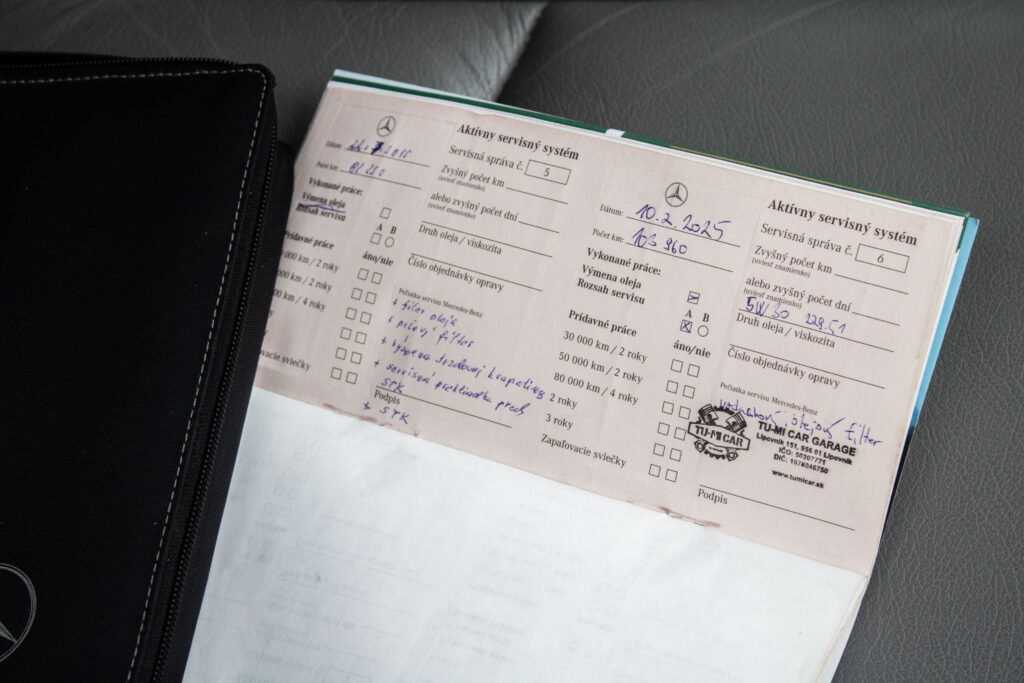 Aktívny servisný systém
Dátum:
Servisná správa č. 5
Počet km:
Zvyšný počet km
(uviesť znamienko)
Vykonané práce:
alebo zvyšný počet dní
(uviesť znamienko)
Výmena oleja
Rozsah servisu
A B
Druh oleja / viskozita
Prídavné práce
áno/nie
Číslo objednávky opravy
000 km / 2 roky
000 km / 2 roky
000 km / 4 roky
Pečiatka servisu Mercedes-Benz
+ filter oleja
+ filter
+ výmena kvapaliny
+ servisná prehliadka
STK
ovacie sviečky
Podpis
+ STK
Aktívny servisný systém
Dátum: 10.2.2025
Servisná správa č. 6
Počet km: 103 960
Zvyšný počet km
(uviesť znamienko)
Vykonané práce:
alebo zvyšný počet dní
(uviesť znamienko)
Výmena oleja
Rozsah servisu
A B
5W/30 229.51
Druh oleja / viskozita
Prídavné práce
áno/nie
Číslo objednávky opravy
30 000 km / 2 roky
50 000 km / 2 roky
80 000 km / 4 roky
2 roky
3 roky
Zapaľovacie sviečky
Pečiatka servisu Mercedes-Benz
olejový filter
TU-MI CAR
TU-MI CAR GARAGE
Lipovník 151, 956 01 Lipovník
IČO: 50307771
DIČ: 1074046750
www.tumicar.sk
Podpis